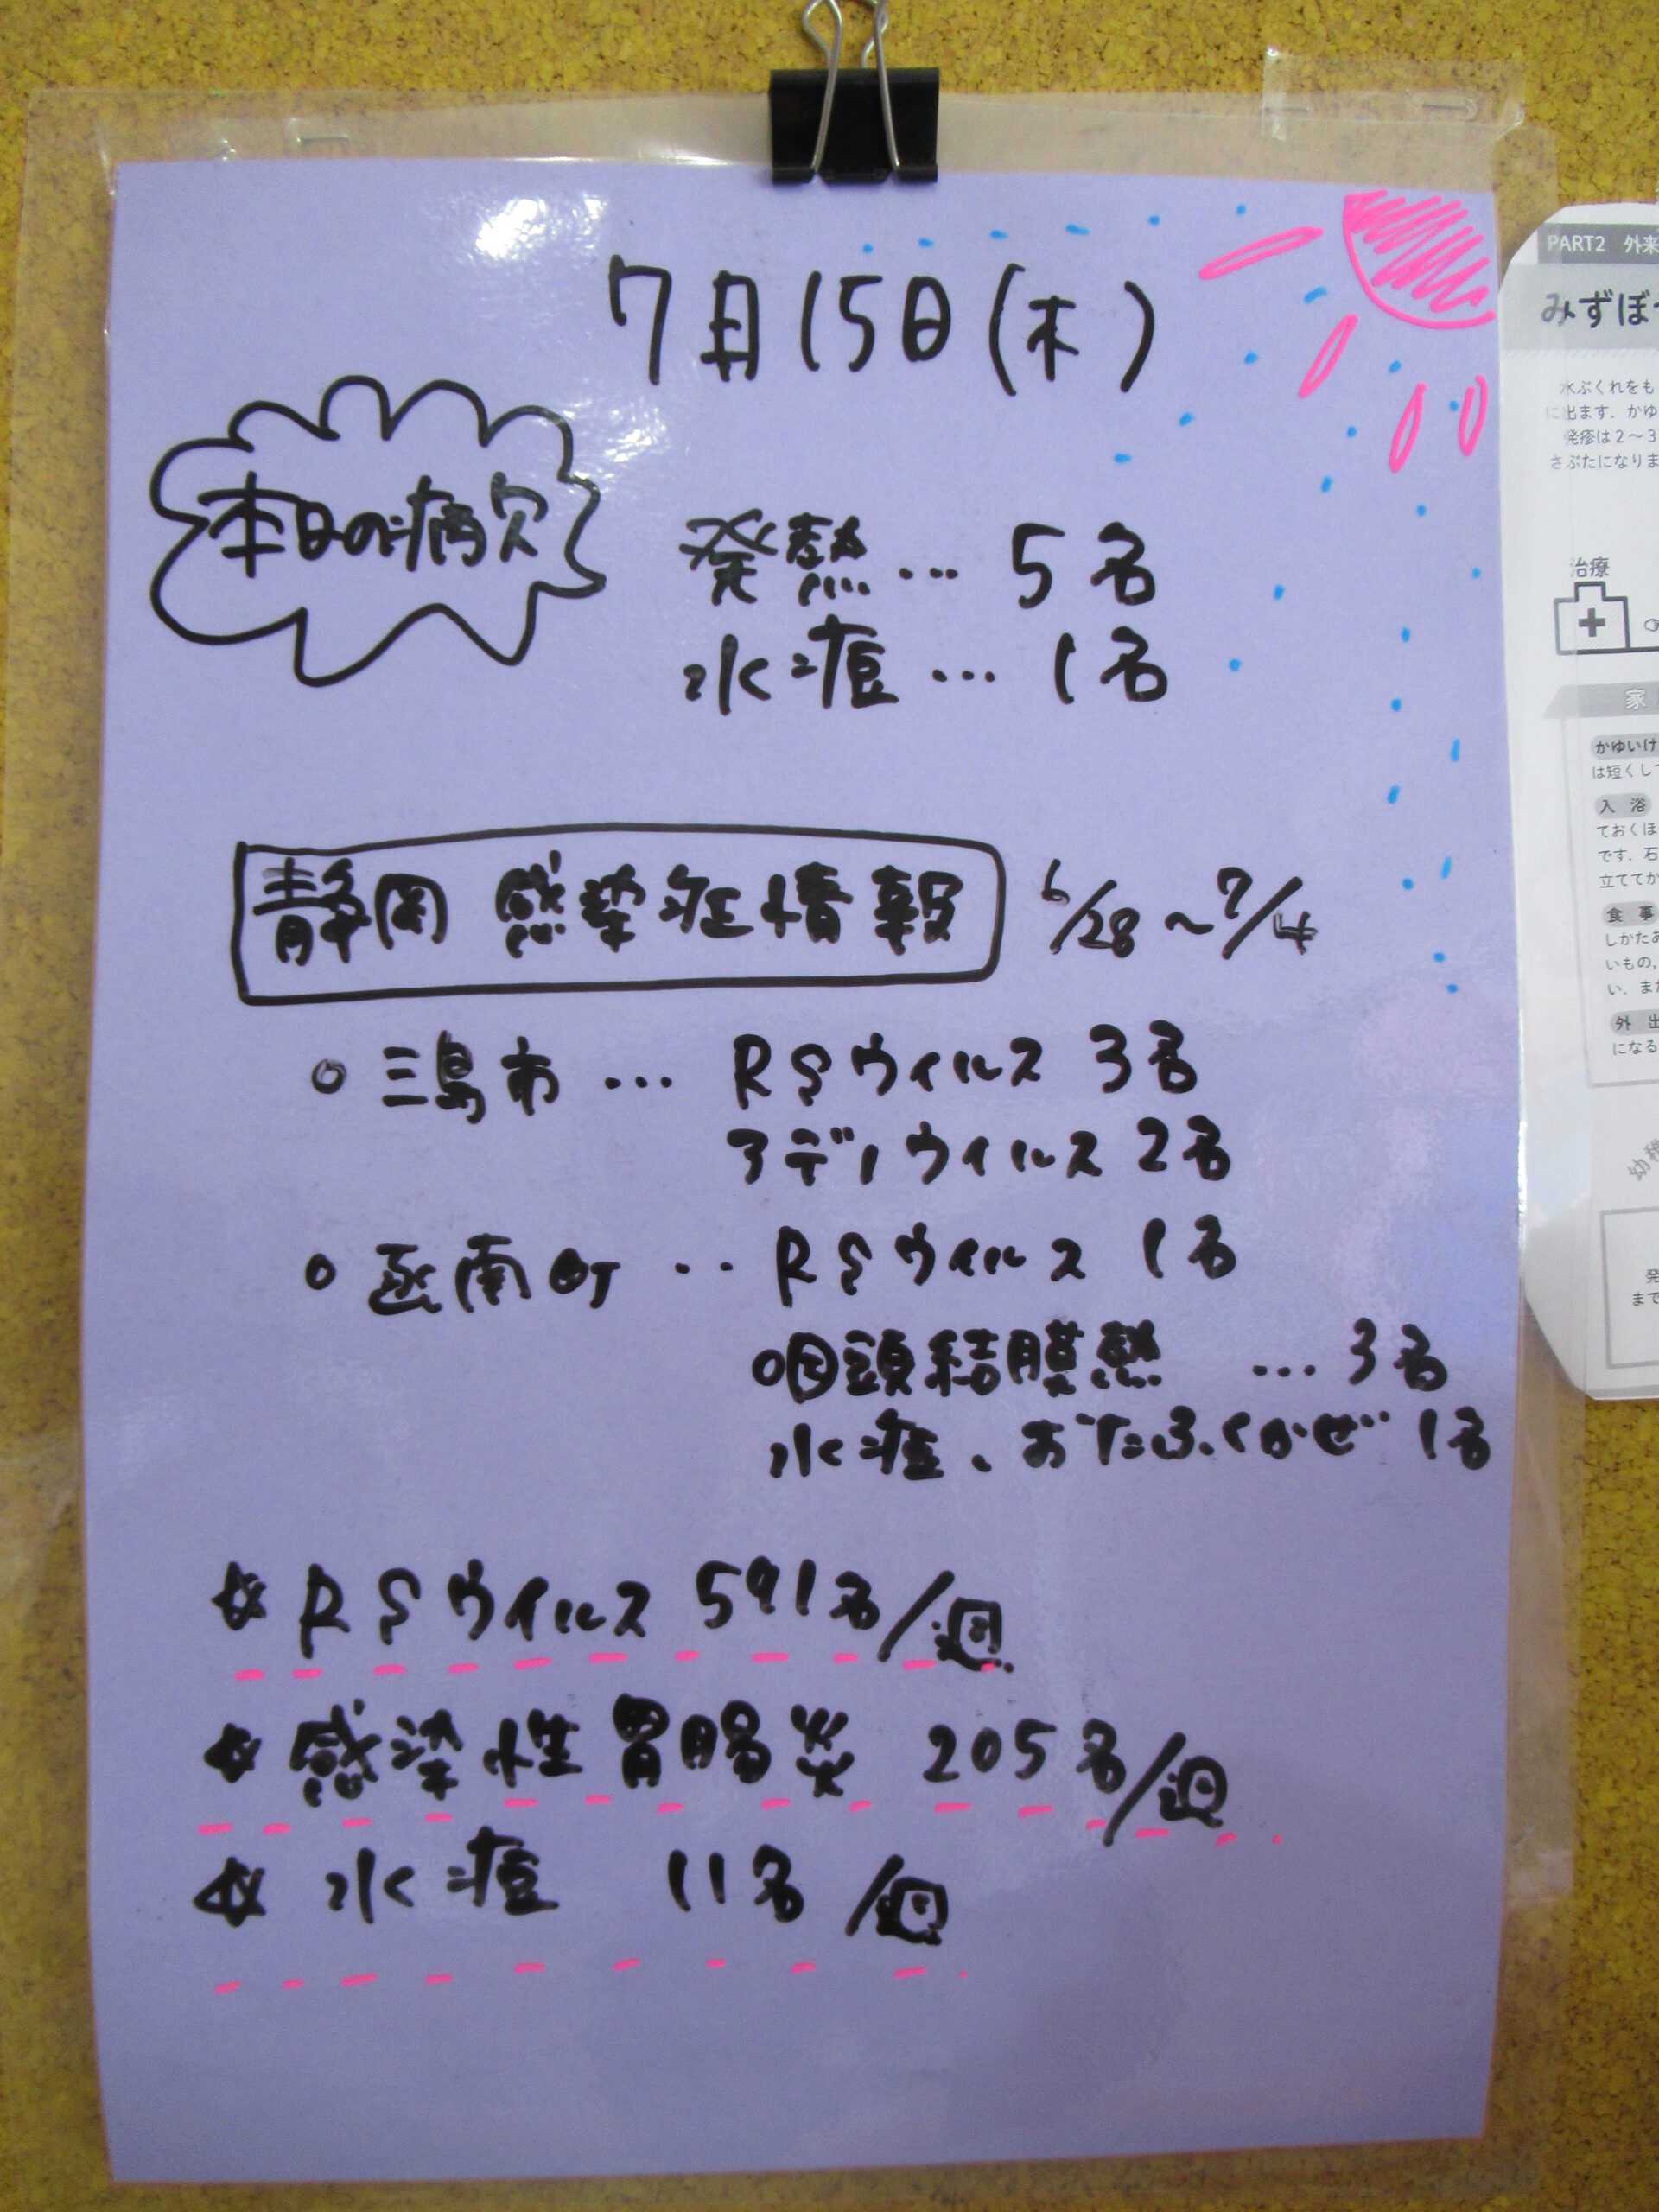 7月15日(木)
本日の病欠
発熱… 5名
水痘… 1名
静岡 感染症情報 6/28~7/4
○ 三島市… RSウイルス 3名
アデノウイルス 2名
○ 函南町‥ RSウイルス 1名
咽頭結膜熱 …3名
水痘、おたふくかぜ 1名
☆ RSウイルス 591名/週
☆ 感染性胃腸炎 205名/週
☆ 水痘 11名/週
PART2 外来
みずぼ
水ぶくれをも
に出ます.かゆ
発疹は2~3
さぶたになりま
治療
家
かゆいけ
は短くして
入浴
ておくほ
です.石
立ててか
食事
しかたあ
いもの,
い.また
外出
になる
幼稚
発
まで